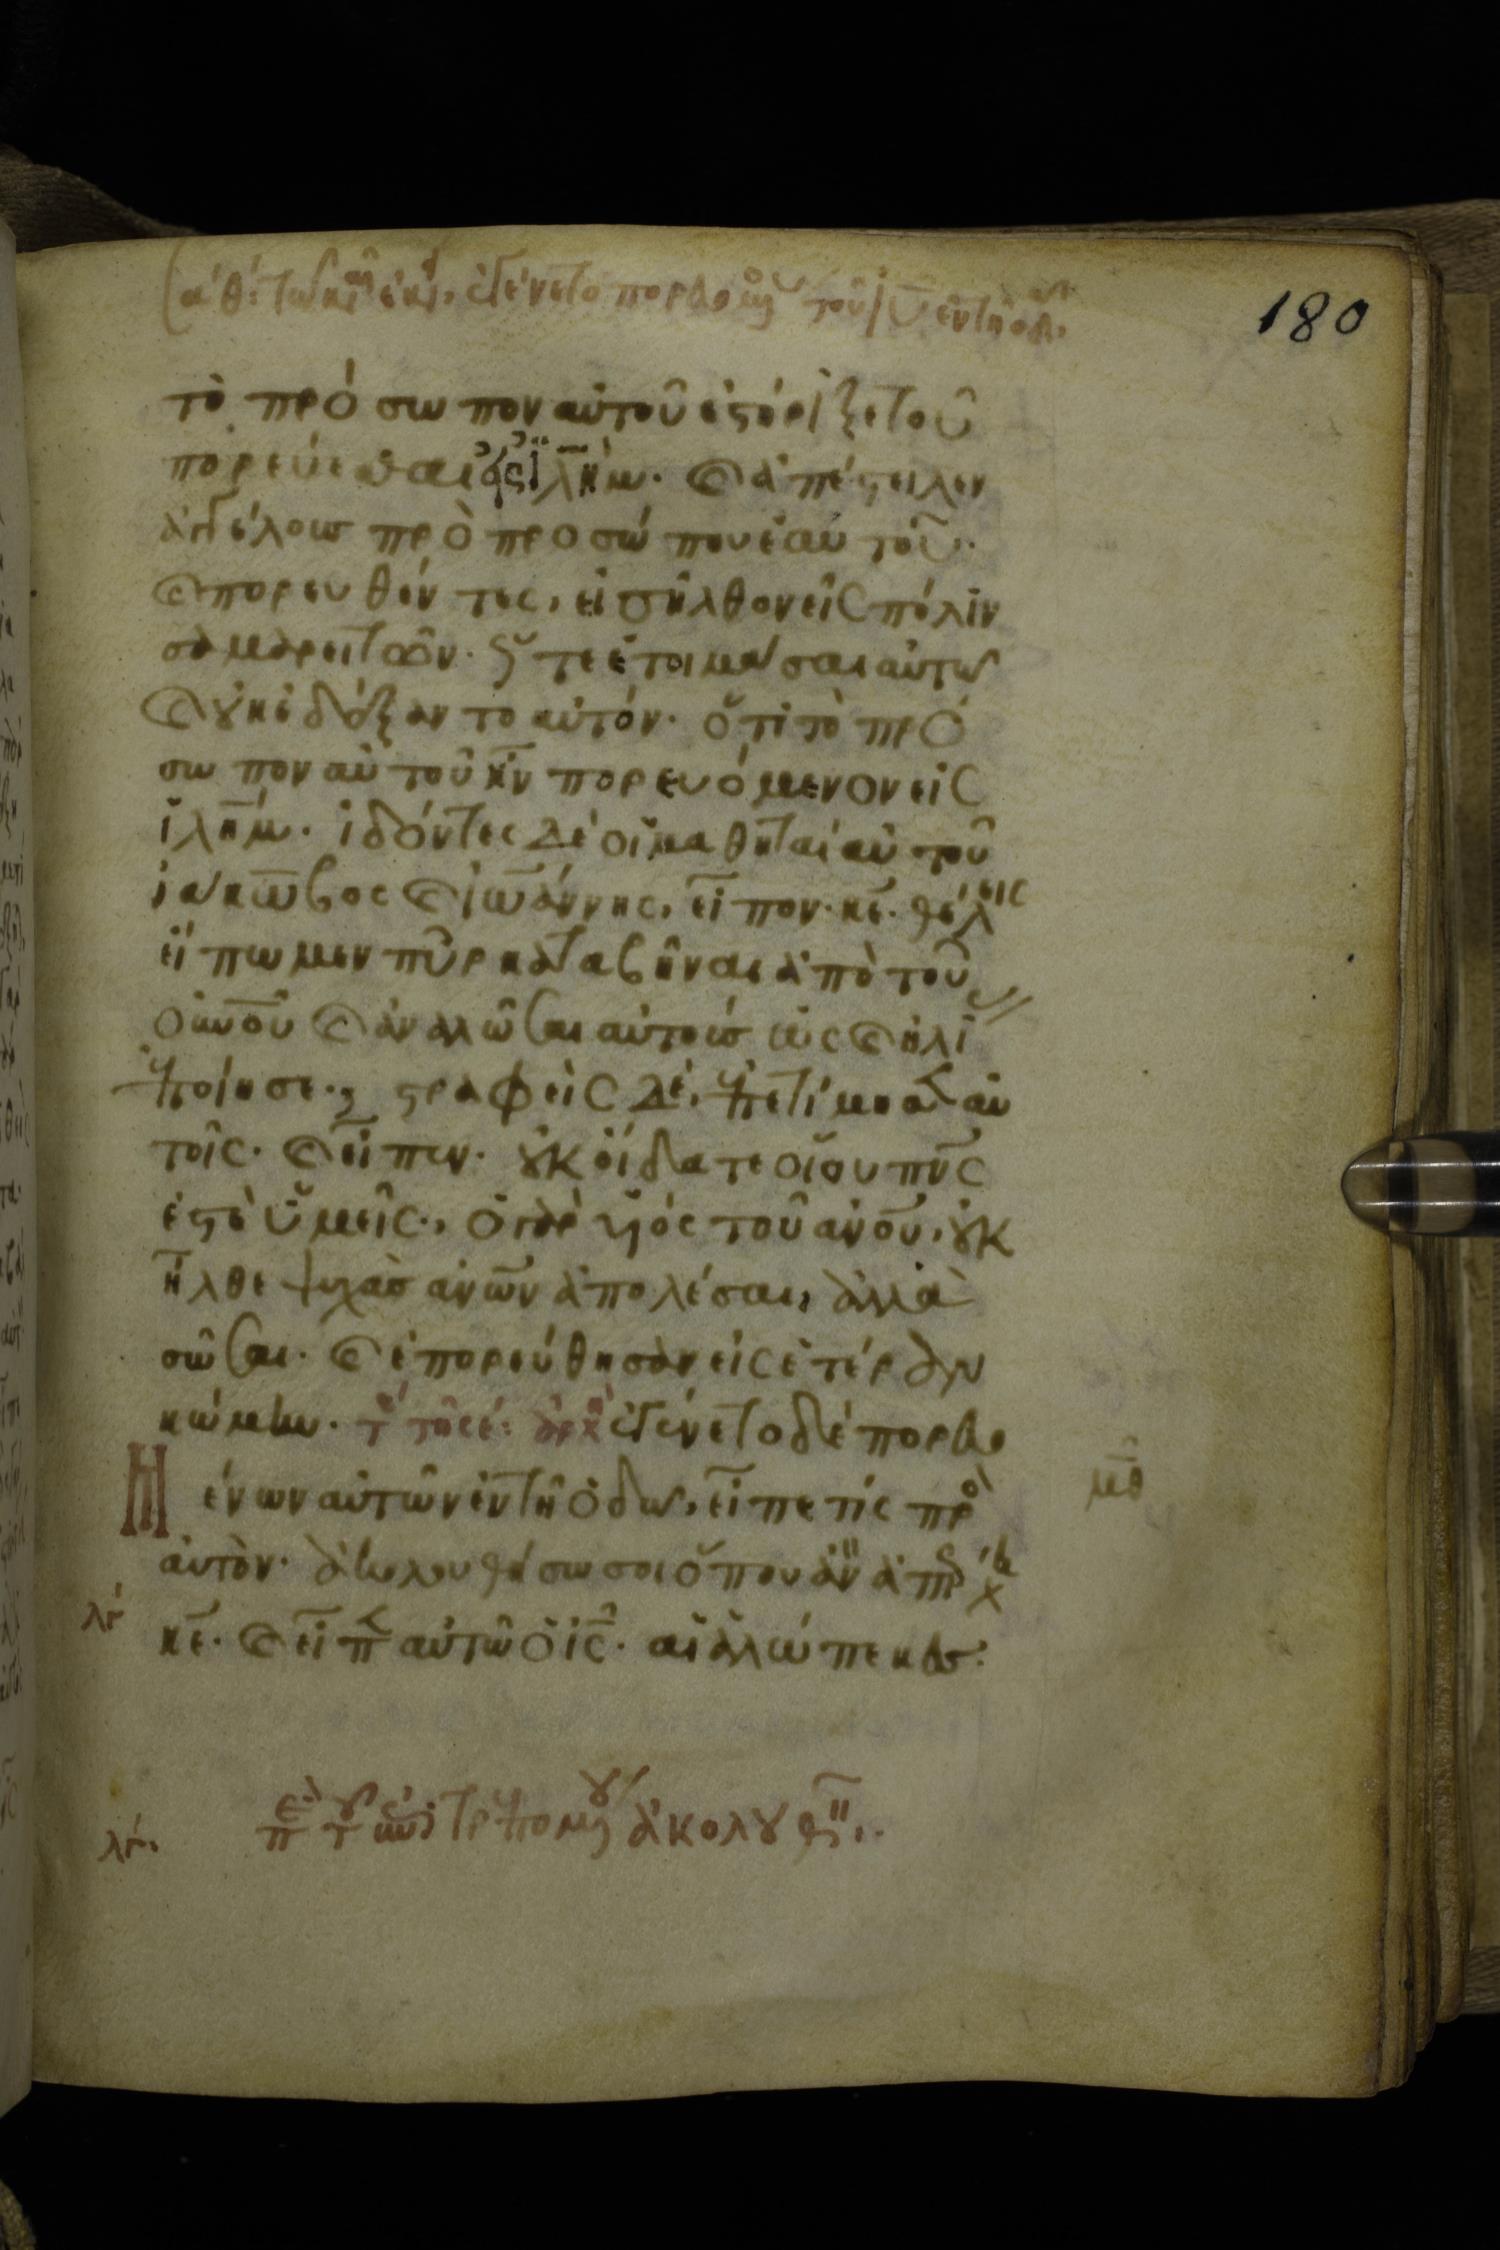 ἐγένετο πορευομένου τοῦ ἰῦ ἐν τῆ ὁδ
180
τὸ πρόσωπον αὐτοῦ ἐστήριξε τοῦ
πορεύεσθαι εἰς ἰλῆμ. καὶ ἀπέστειλεν
ἀγγέλους πρὸ προσώπου ἑαυτοῦ.
καὶ πορευθέντες, εἰσῆλθον εἰς πόλιν
σαμαρειτῶν. ὥστε ἑτοιμάσαι αὐτῶ
καὶ οὐκ ἐδέξαντο αὐτόν. ὅτι τὸ πρό
σωπον αὐτοῦ ἦν πορευόμενον εἰς
ἰλῆμ. ἰδόντες δὲ οἱ μαθηταὶ αὐτοῦ
ἰάκωβος καὶ ἰωάννης, εἶπον. κε. θέλεις
εἴπωμεν πῦρ καταβῆναι ἀπὸ τοῦ
οὐνοῦ καὶ ἀναλῶσαι αὐτοὺς ὡς καὶ ἠλί
ἐποίησε. στραφεὶς δὲ, ἐπετίμησεν αὐ
τοῖς. καὶ εἶπεν. οὐκ οἴδατε οἵου πνς
ἐστὲ ὑμεῖς. ὁ γὰρ υἱὸς τοῦ ανου, οὐκ
ἦλθε ψυχὰς ανων ἀπολέσαι, ἀλλὰ
σῶσαι. καὶ ἐπορεύθησαν εἰς ἑτέραν
κώμην. ἀρχ ἐγένετο δὲ πορευο
μένων αὐτῶν ἐν τῆ ὁδῶ, εἶπέ τις πρὸ
αὐτὸν. ἀκολουθήσω σοι ὅπου ἂν ἀπέρχη
κε. καὶ εἶπεν αὐτῶ ὁ ις. αἱ ἀλώπεκες
ἀκολουθ